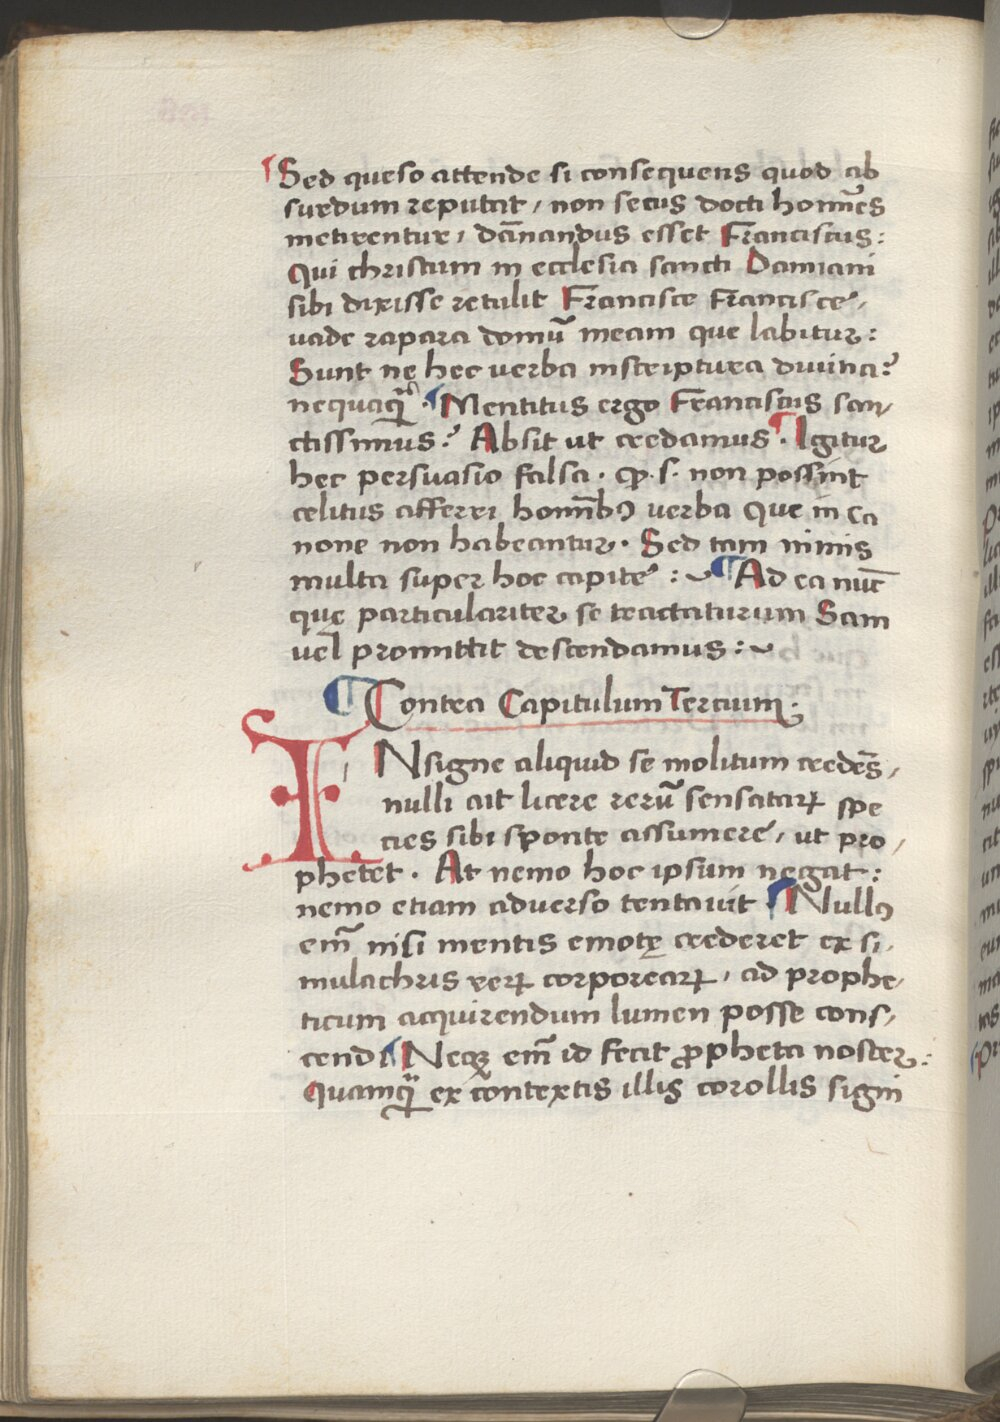 ¶Sed queso attende si consequens quod ab
surdum reputat, non secus docti homīes
metirentur, dānandus esset Franciscus:
Qui christum in ecclesia sancti Damiani
sibi dixisse retulit Francisce Francisce,
vade rapara domū meam que labitur:
Sunt ne hec verba inscriptura diuina?
nequaq̄ꝫ. ¶Mentitus ergo Franciscus san,
ctissimus? Absit ut credamus. ¶Igitur
hec persuasio falsa. ꝙ. s. non possint
celitus afferri homībꝰ verba que in ca
none non habeantur. Sed tam nimis
multa super hoc capite: ¶Ad ea nūc
que particulariter se tractaturum Sam
uel promittit descendamus:
¶Contra Capitulum Tercium.
INsigne aliquid se molitum credēs,
nulli ait licere rerū sensatarꝝ spe
cies sibi sponte assumere, ut pro,
phetet. At nemo hoc ipsum negat:
nemo etiam aduerso tentauit ¶Nullꝰ
em̄ nisi mentis emotę crederet ex si,
mulachris rerꝝ corporearꝝ, ad prophe,
ticum acquirendum lumen posse cons,
cendi ¶Neqꝫ em̄ id fecit ꝓpheta noster:
Quamq̄ꝫ ex contextis illis corollis signi